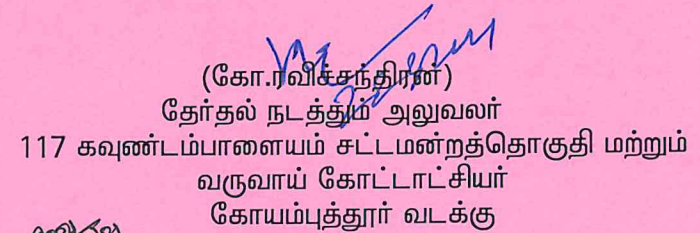 (கோ.ரவிச்சந்திரன்)
தேர்தல் நடத்தும் அலுவலர்
117 கவுண்டம்பாளையம் சட்டமன்றத்தொகுதி மற்றும்
வருவாய் கோட்டாட்சியர்
கோயம்புத்தூர் வடக்கு